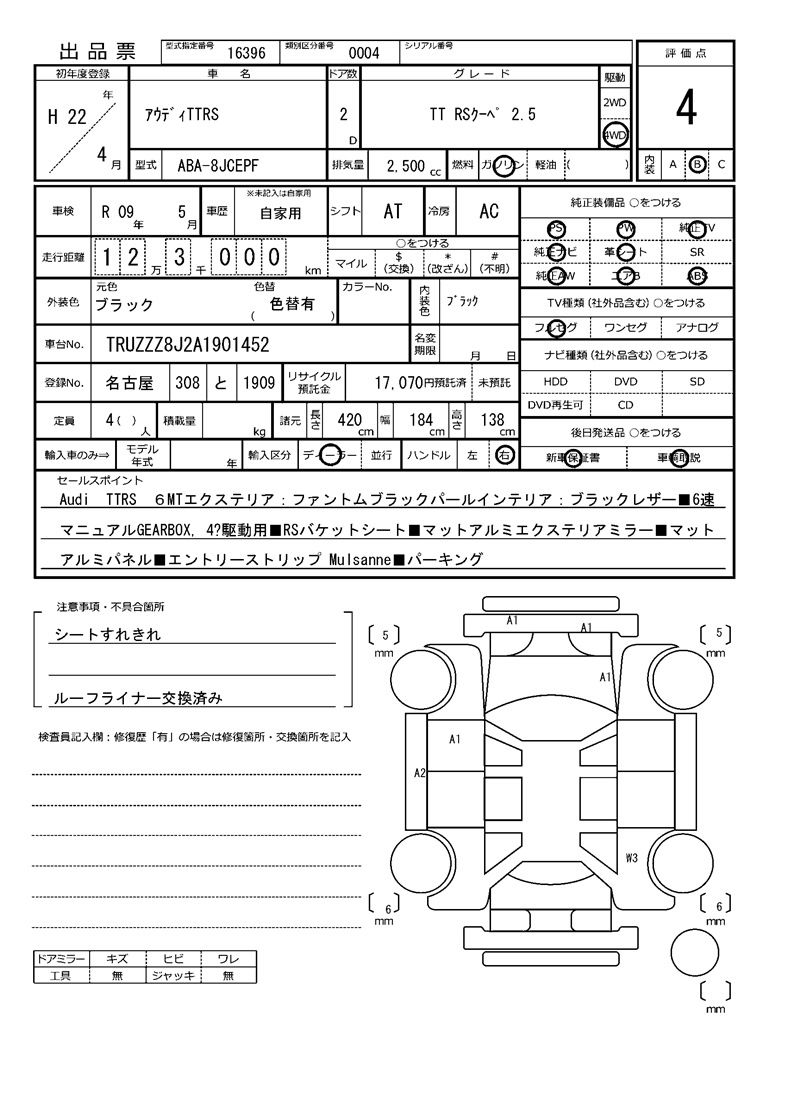 出品票
型式指定番号 16396 類別区分番号 0004 シリアル番号
初年度登録 車名 ドア数 グレード 駆動 評価点
H 22 年 4 月 アウディTTRS 2 D TT RSクーペ 2.5 2WD 4WD 4
型式 ABA-8JCEPF 排気量 2,500 cc 燃料 ガソリン 軽油 ( ) 内装 A B C
車検 R 09 年 5 月 車歴 ※未記入は自家用 自家用 シフト AT 冷房 AC
純正装備品 ○をつける
PS PW 純正TV
走行距離 1 2 万 3 千 0 0 0 km ○をつける マイル $ (交換) * (改ざん) # (不明)
純正ナビ 革シート SR
純正AW エアB ABS
外装色 元色 ブラック 色替 ( 色替有 ) カラーNo. 内装色 ブラック
TV種類 (社外品含む) ○をつける
フルセグ ワンセグ アナログ
車台No. TRUZZZ8J2A1901452 名変期限 月 日
ナビ種類 (社外品含む) ○をつける
登録No. 名古屋 308 と 1909 リサイクル預託金 17,070円預託済 未預託
HDD DVD SD
DVD再生可 CD
定員 4( ) 人 積載量 kg 諸元 長さ 420 cm 幅 184 cm 高さ 138 cm
後日発送品 ○をつける
輸入車のみ⇒ モデル年式 年 輸入区分 ディーラー 並行 ハンドル 左 右
新車保証書 車輌取説
セールスポイント
Audi TTRS 6MTエクステリア：ファントムブラックパールインテリア：ブラックレザー■6速
マニュアルGEARBOX, 4?駆動用■RSバケットシート■マットアルミエクステリアミラー■マット
アルミパネル■エントリーストリップ Mulsanne■パーキング
注意事項・不具合箇所
シートすれきれ
ルーフライナー交換済み
検査員記入欄：修復歴「有」の場合は修復箇所・交換箇所を記入
A1
A1
5 mm
5 mm
A1
A1
A2
W3
6 mm
6 mm
mm
ドアミラー キズ ヒビ ワレ
工具 無 ジャッキ 無